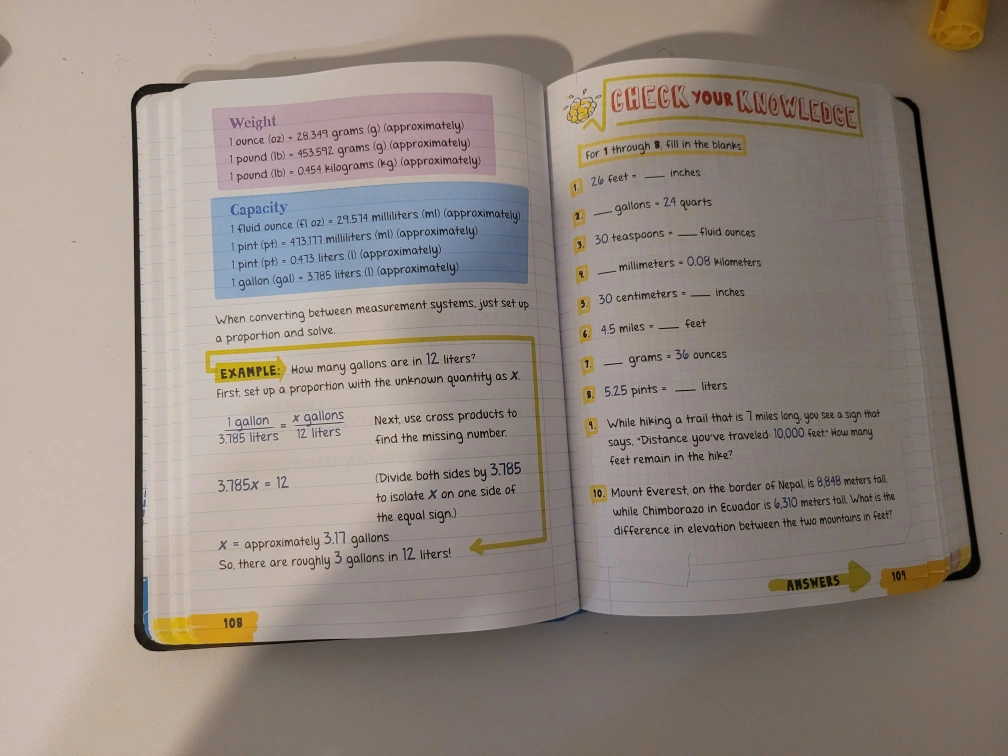 Weight
1 ounce (oz) = 28.349 grams (g) (approximately)
1 pound (lb) = 453.592 grams (g) (approximately)
1 pound (lb) = 0.454 kilograms (kg) (approximately)
Capacity
1 fluid ounce (fl oz) = 29.574 milliliters (ml) (approximately)
1 pint (pt) = 473.177 milliliters (ml) (approximately)
1 pint (pt) = 0.473 liters (l) (approximately)
1 gallon (gal) = 3.785 liters (l) (approximately)
When converting between measurement systems, just set up
a proportion and solve.
EXAMPLE: How many gallons are in 12 liters?
First, set up a proportion with the unknown quantity as X.
1 gallon / 3.785 liters = x gallons / 12 liters
Next, use cross products to
find the missing number.
3.785x = 12
(Divide both sides by 3.785
to isolate X on one side of
the equal sign.)
X = approximately 3.17 gallons
So, there are roughly 3 gallons in 12 liters!
108
CHECK YOUR KNOWLEDGE
For 1 through 8, fill in the blanks.
1. 26 feet = ___ inches
2. ___ gallons = 24 quarts
3. 30 teaspoons = ___ fluid ounces
4. ___ millimeters = 0.08 kilometers
5. 30 centimeters = ___ inches
6. 4.5 miles = ___ feet
7. ___ grams = 36 ounces
8. 5.25 pints = ___ liters
9. While hiking a trail that is 7 miles long, you see a sign that
says, "Distance you've traveled: 10,000 feet." How many
feet remain in the hike?
10. Mount Everest, on the border of Nepal, is 8,848 meters tall,
while Chimborazo in Ecuador is 6,310 meters tall. What is the
difference in elevation between the two mountains in feet?
ANSWERS
109